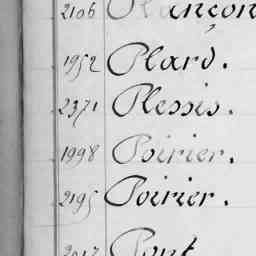 2106 Plançon
1952 Plard.
2371 Plessis.
1998 Poirier.
2195 Poirier.
2017 Pont